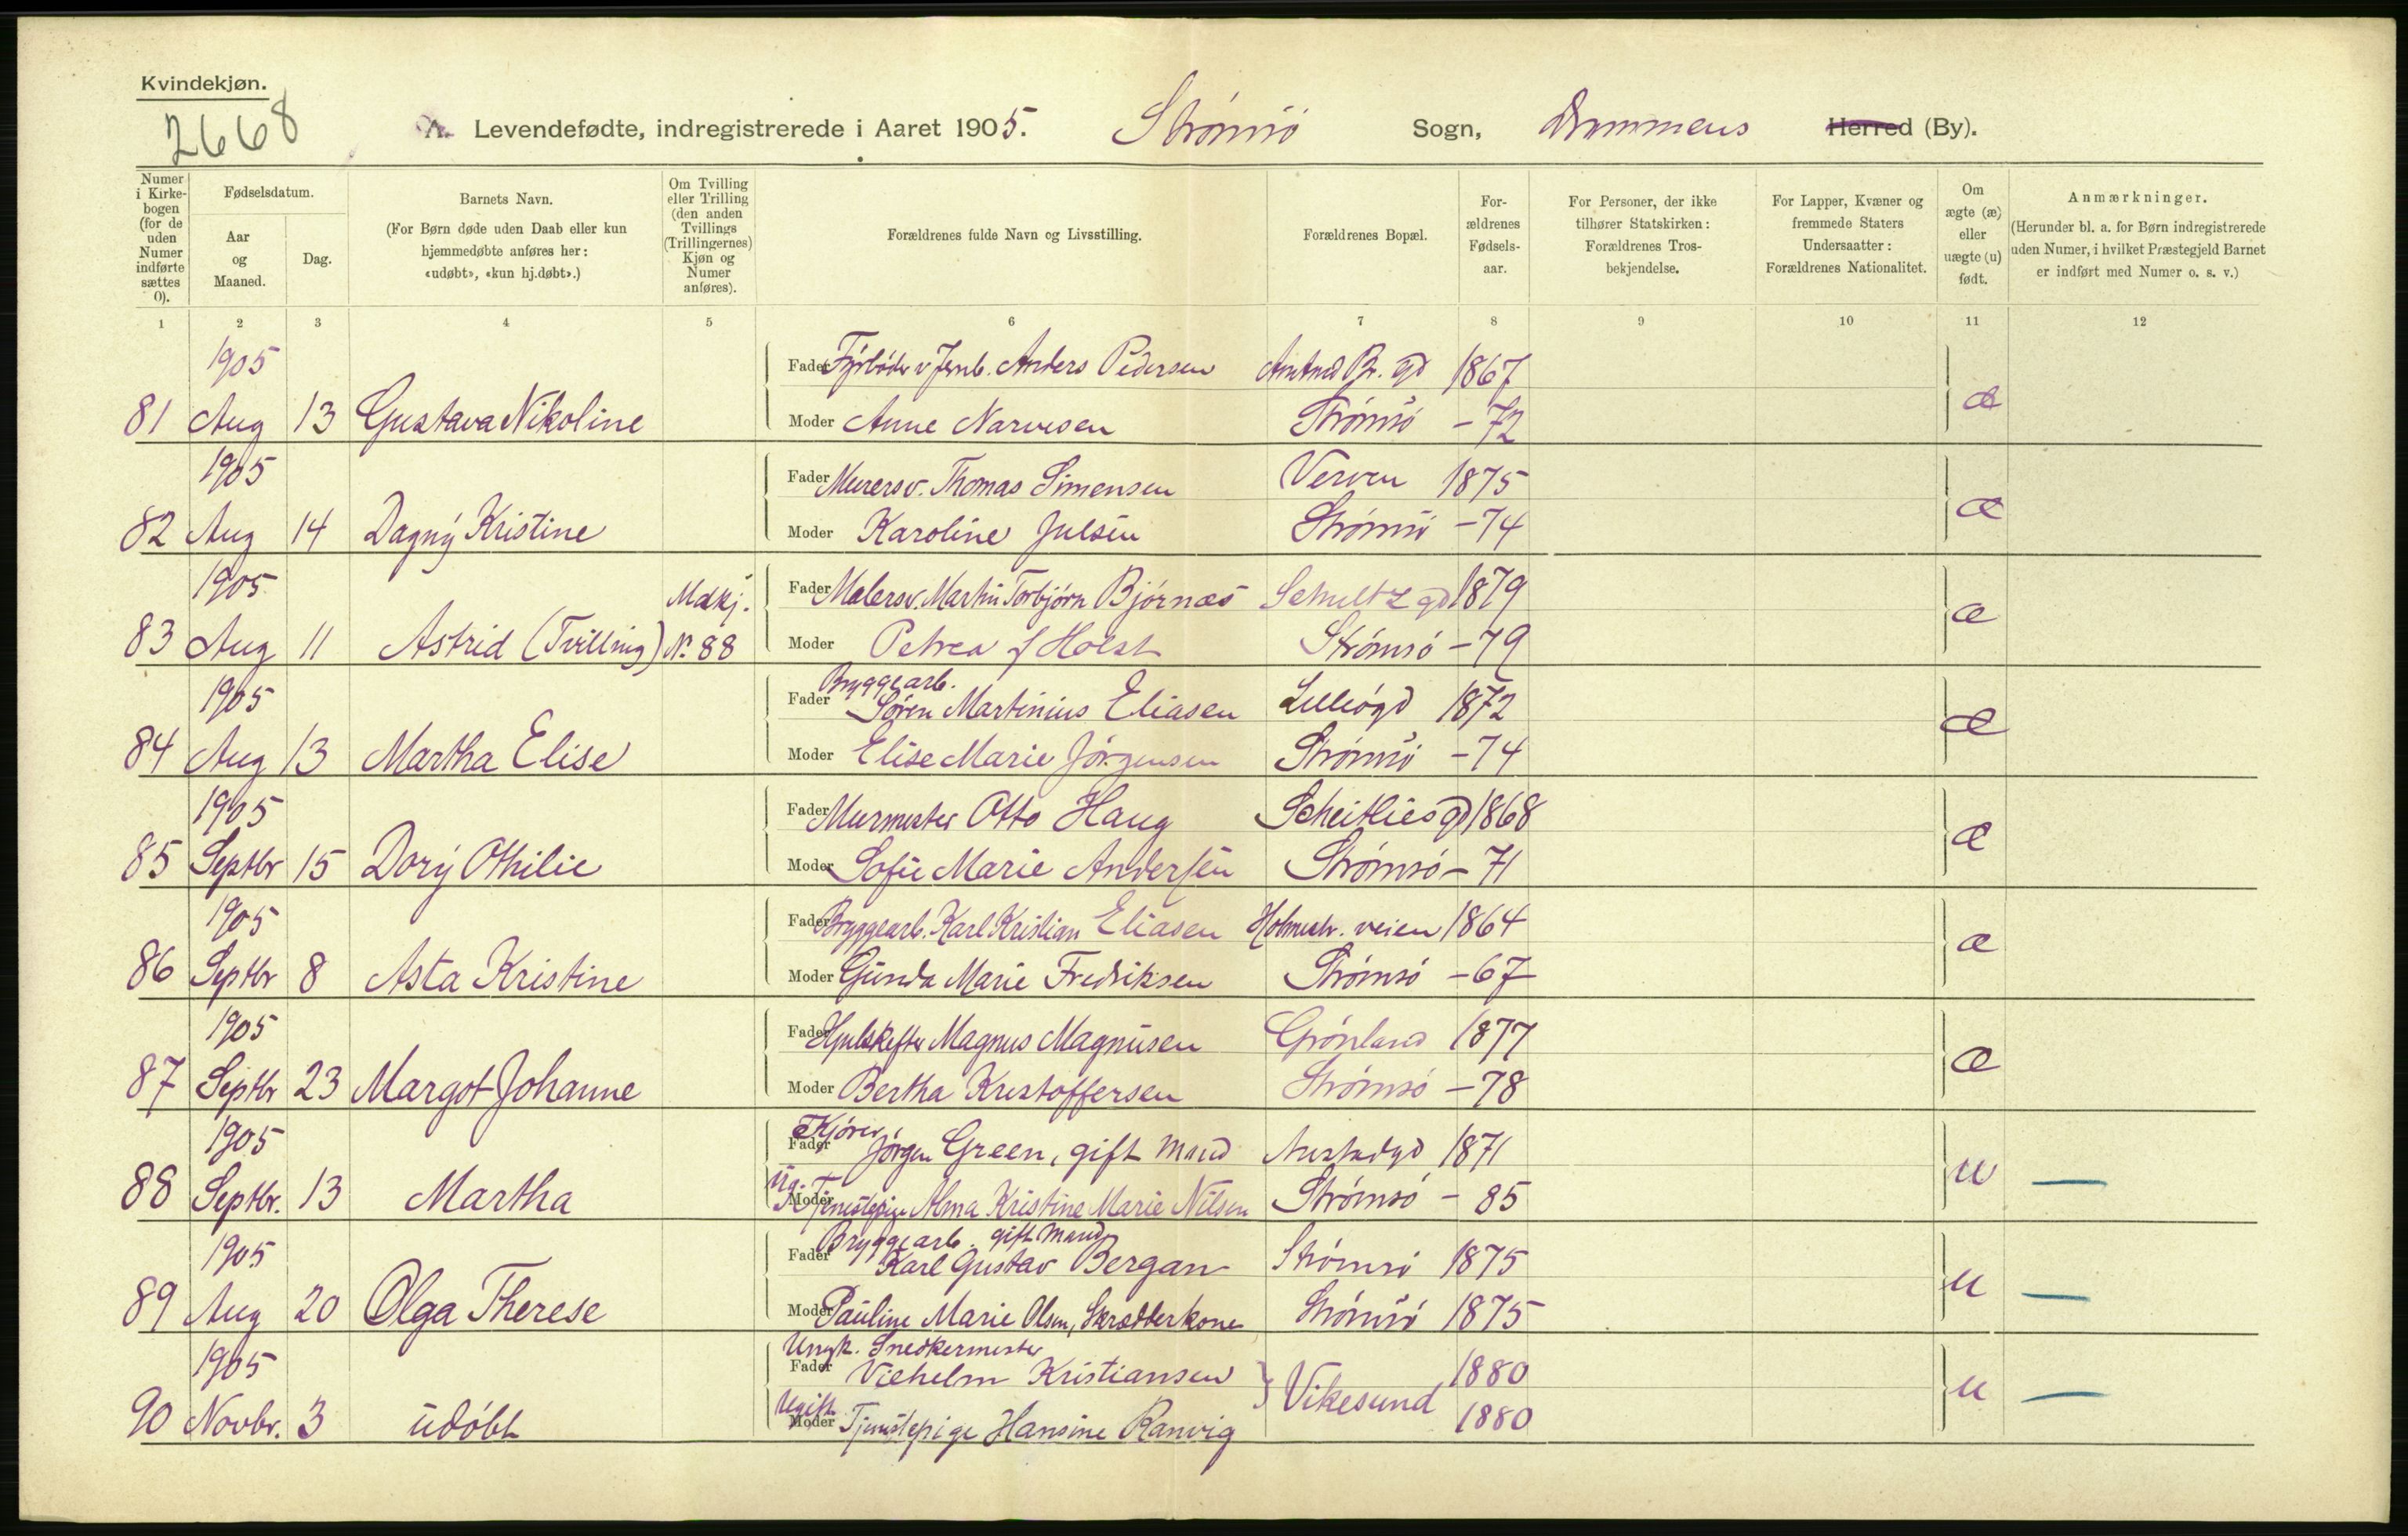 Kvindekjøn.
2668
A. Levendefødte, indregistrerede i Aaret 1905. Strømsø Sogn, Drammens Herred (By).
Numer i Kirkebogen (for de uden Numer indførte sættes 0).
Fødselsdatum.
Aar og Maaned.
Dag.
Barnets Navn.
(For Børn døde uden Daab eller kun hjemmedøbte anføres her: «udøbt», «kun hj.døbt».)
Om Tvilling eller Trilling (den anden Tvillings (Trillingernes) Kjøn og Numer anføres).
Forældrenes fulde Navn og Livsstilling.
Forældrenes Bopæl.
Forældrenes Fødselsaar.
For Personer, der ikke tilhører Statskirken: Forældrenes Trosbekjendelse.
For Lapper, Kvæner og fremmede Staters Undersaatter: Forældrenes Nationalitet.
Om ægte (æ) eller uægte (u) født.
Anmærkninger.
(Herunder bl. a. for Børn indregistrerede uden Numer, i hvilket Præstegjeld Barnet er indført med Numer o. s. v.)
1 2 3 4 5 6 7 8 9 10 11 12
1905 Fader Fyrbøder v Jernb. Anders Pedersen 1867
81 Aug 13 Gustava Nikoline Moder Anne Narvesen Strømsø -72 æ
1905 Fader Murersv. Thomas Simensen Verven 1875
82 Aug 14 Dagny Kristine Moder Karoline Julsen Strømsø -74 æ
1905 Mdkj. Fader Malersv. Martin Torbjørn Bjørnæs Schultz gd 1879
83 Aug 11 Astrid (Tvilling) N. 88 Moder Petrea f Holst Strømsø -79 æ
1905 Fader Bryggearb. Søren Martinius Eliasen Lilleøgd 1872
84 Aug 13 Martha Elise Moder Elise Marie Jörgensen Strømsø -74 æ
1905 Fader Murmester Otto Haug Scheitliesgd 1868
85 Septbr 15 Dory Othilie Moder Sofie Marie Andersen Strømsø -71 æ
1905 Fader Bryggearb. Karl Kristian Eliasen Holmestr. veien 1864
86 Septbr 8 Asta Kristine Moder Gunda Marie Fredriksen Strømsø -67 æ
1905 Fader Magnus Magnusen Grønland 1877
87 Septbr 23 Margot Johanne Moder Bertha Kristoffersen Strømsø -78 æ
1905 Fader Kjører Jørgen Green, gift Mand Austadgd 1871
88 Septbr. 13 Martha Ug. Moder Tjenestepige Alma Kristine Marie Nilsen Strømsø - 85 u —
1905 Fader Bryggearb. gift Mand Karl Gustav Bergan Strømsø 1875
89 Aug 20 Olga Therese Moder Pauline Marie Olsen, Skrædderkone Strømsø 1875 u —
1905 Fader Ungk. Snedkermester Vilhelm Kristiansen Vikesund 1880
90 Novbr. 3 udøbt Ugift Moder Tjenstepige Hansine Ranvig 1880 u —